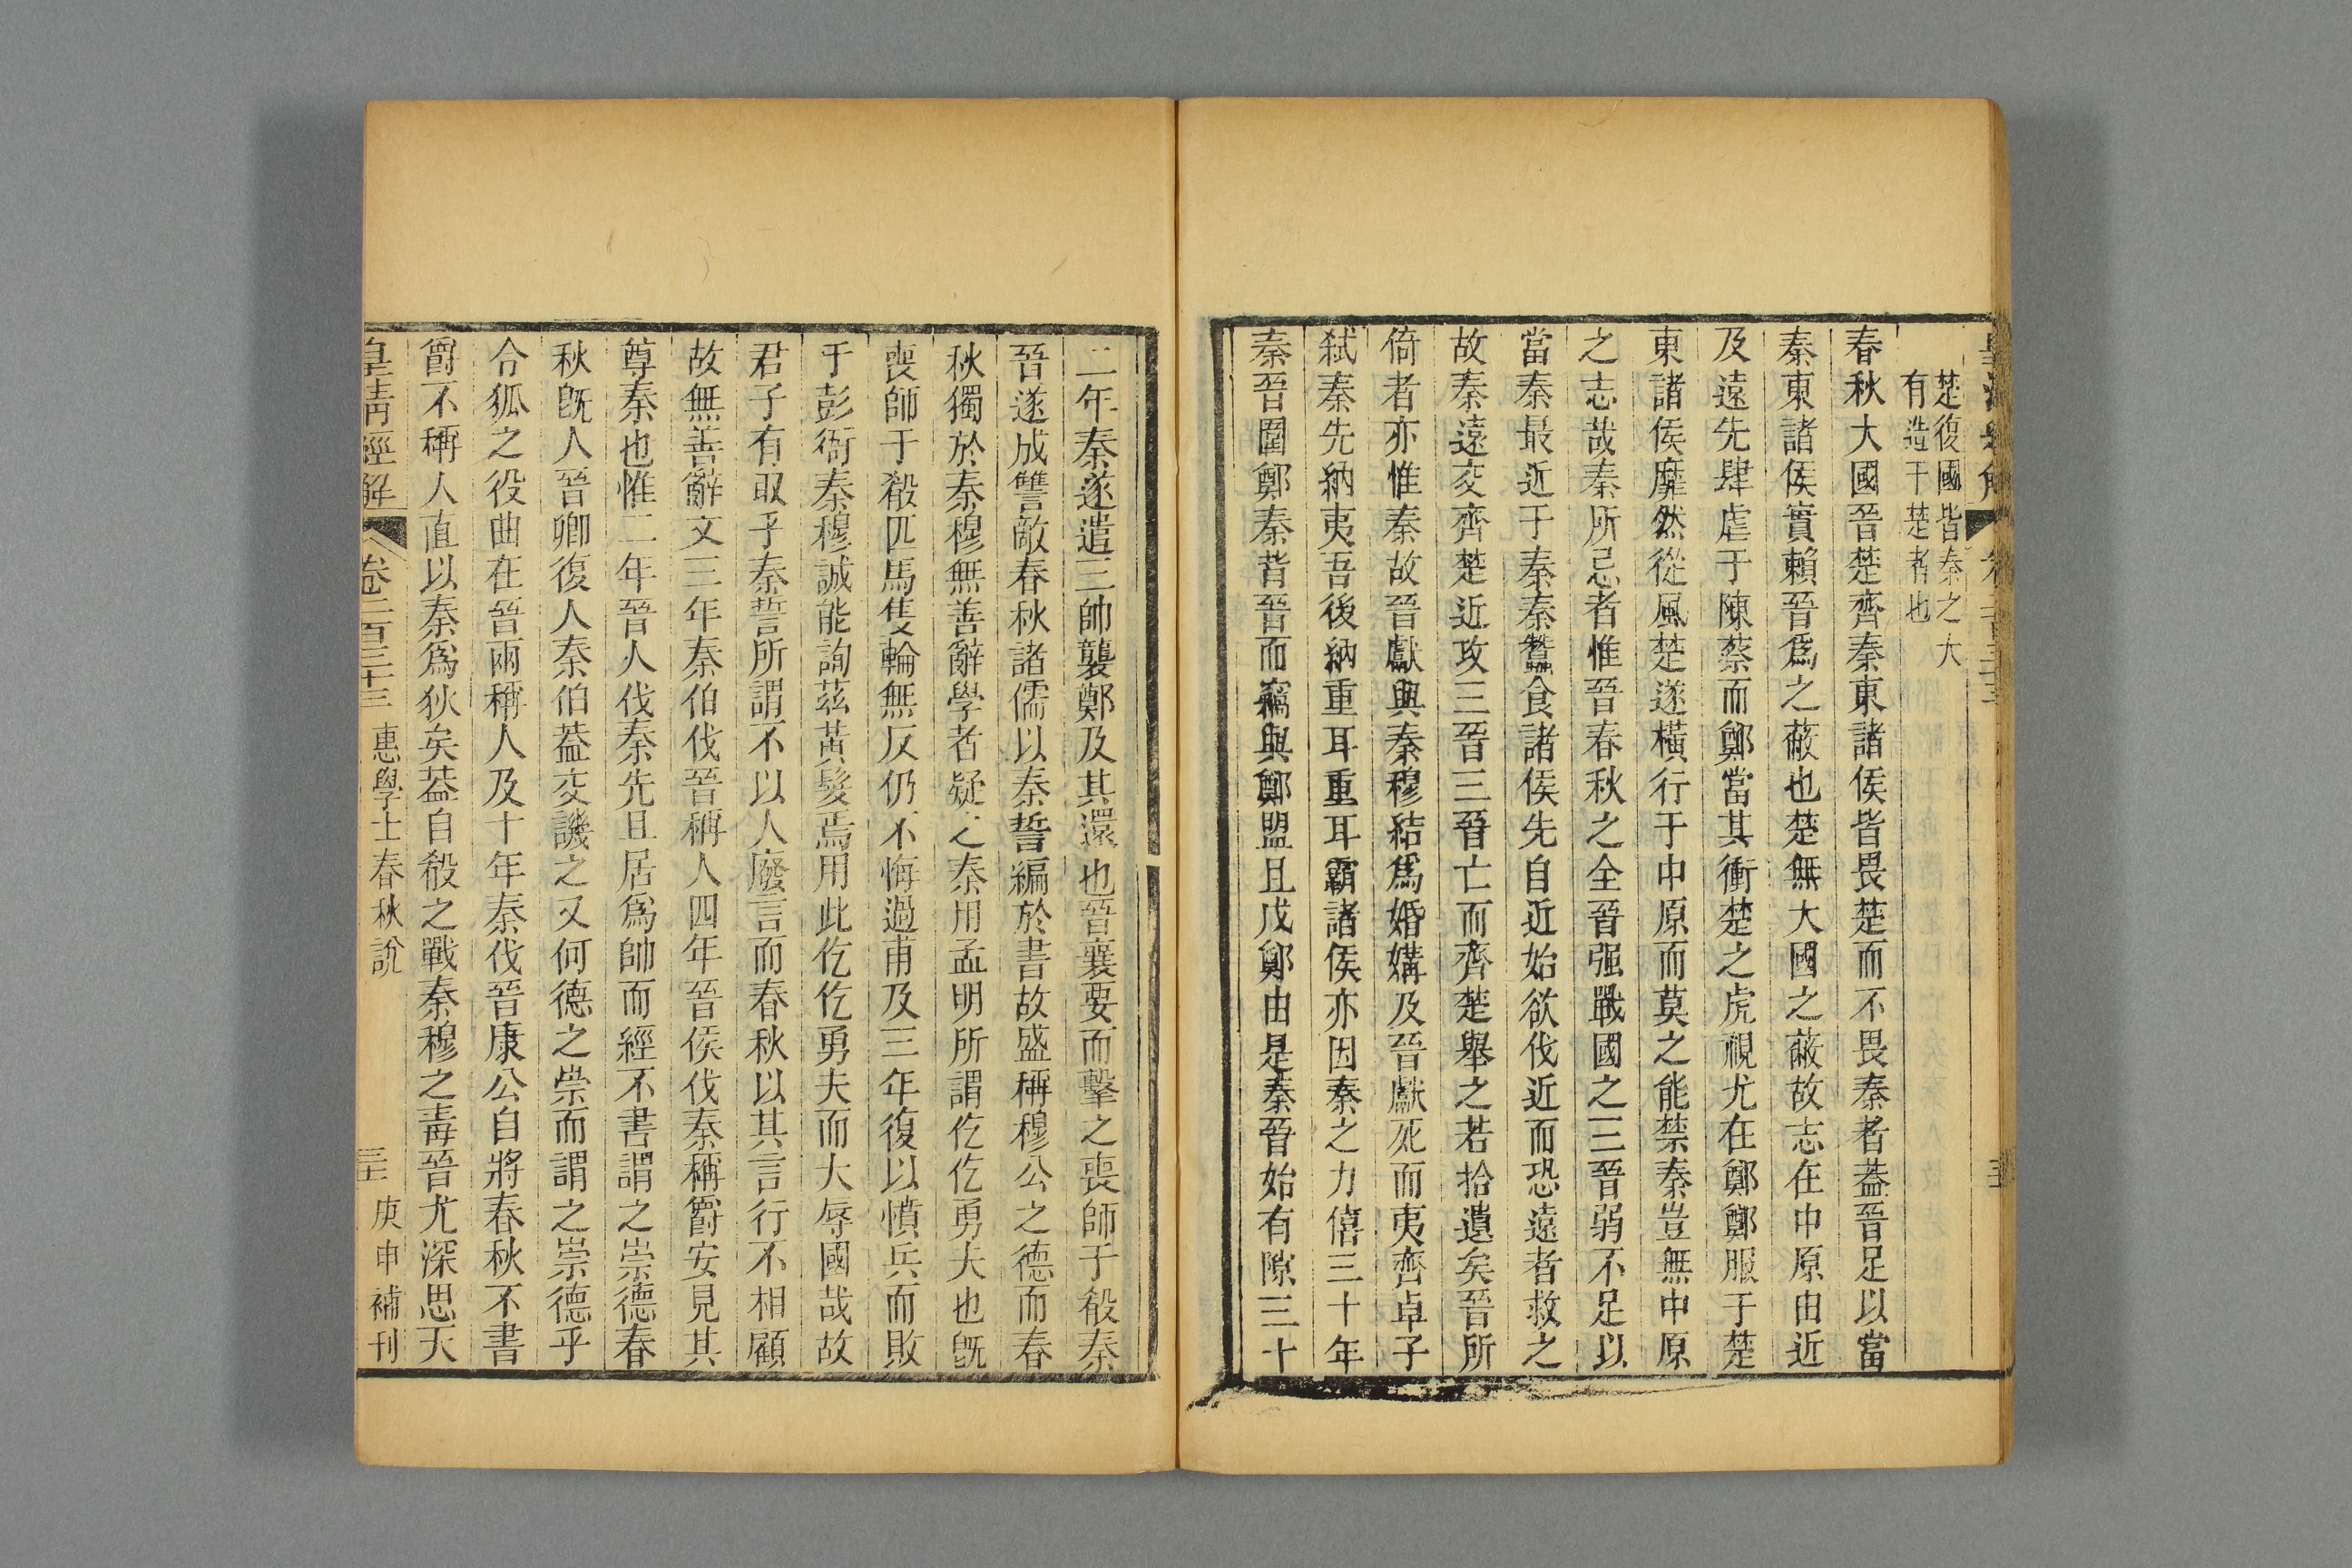 楚復國皆秦之大
有造于楚者也
春秋大國晉楚齊秦東諸侯皆畏楚而不畏秦者葢晉足以當
秦東諸侯實賴晉爲之蔽也楚無大國之蔽故志在中原由近
及遠先肆虐于陳蔡而鄭當其衝楚之虎視尤在鄭鄭服于楚
東諸侯靡然從風楚遂橫行于中原而莫之能禁秦豈無中原
之志哉秦所忌者惟晉春秋之全晉强戰國之三晉弱不足以
當秦最近于秦秦蠶食諸侯先自近始欲伐近而恐遠者救之
故秦遠交齊楚近攻三晉三晉亡而齊楚舉之若拾遺矣晉所
倚者亦惟秦故晉獻與秦穆結爲婚媾及晉獻死而夷齊卓子
弑秦先納夷吾後納重耳重耳霸諸侯亦因秦之力僖三十年
秦晉圍鄭秦背晉而竊與鄭盟且戍鄭由是秦晉始有隙三十
二年秦遂遣三帥襲鄭及其還也晉襄要而擊之喪師于殽秦
晉遂成讐敵春秋諸儒以秦誓編於書故盛稱穆公之德而春
秋獨於秦穆無善辭學者疑之秦用孟明所謂仡仡勇夫也旣
喪師于殽匹馬隻輪無反仍不悔過甫及三年復以憤兵而敗
于彭衙秦穆誠能詢茲黃髮焉用此仡仡勇夫而大辱國哉故
君子有取乎秦誓所謂不以人廢言而春秋以其言行不相顧
故無善辭文三年秦伯伐晉稱人四年晉侯伐秦稱爵安見其
尊秦也惟二年晉人伐秦先且居爲帥而經不書謂之崇德春
秋旣人晉卿復人秦伯葢交譏之又何德之崇而謂之崇德乎
令狐之役曲在晉兩稱人及十年秦伐晉康公自將春秋不書
爵不稱人直以秦爲狄矣葢自殽之戰秦穆之毒晉尤深思天
皇清經解 卷二百三十三 惠學士春秋說 三十 庚申補刊